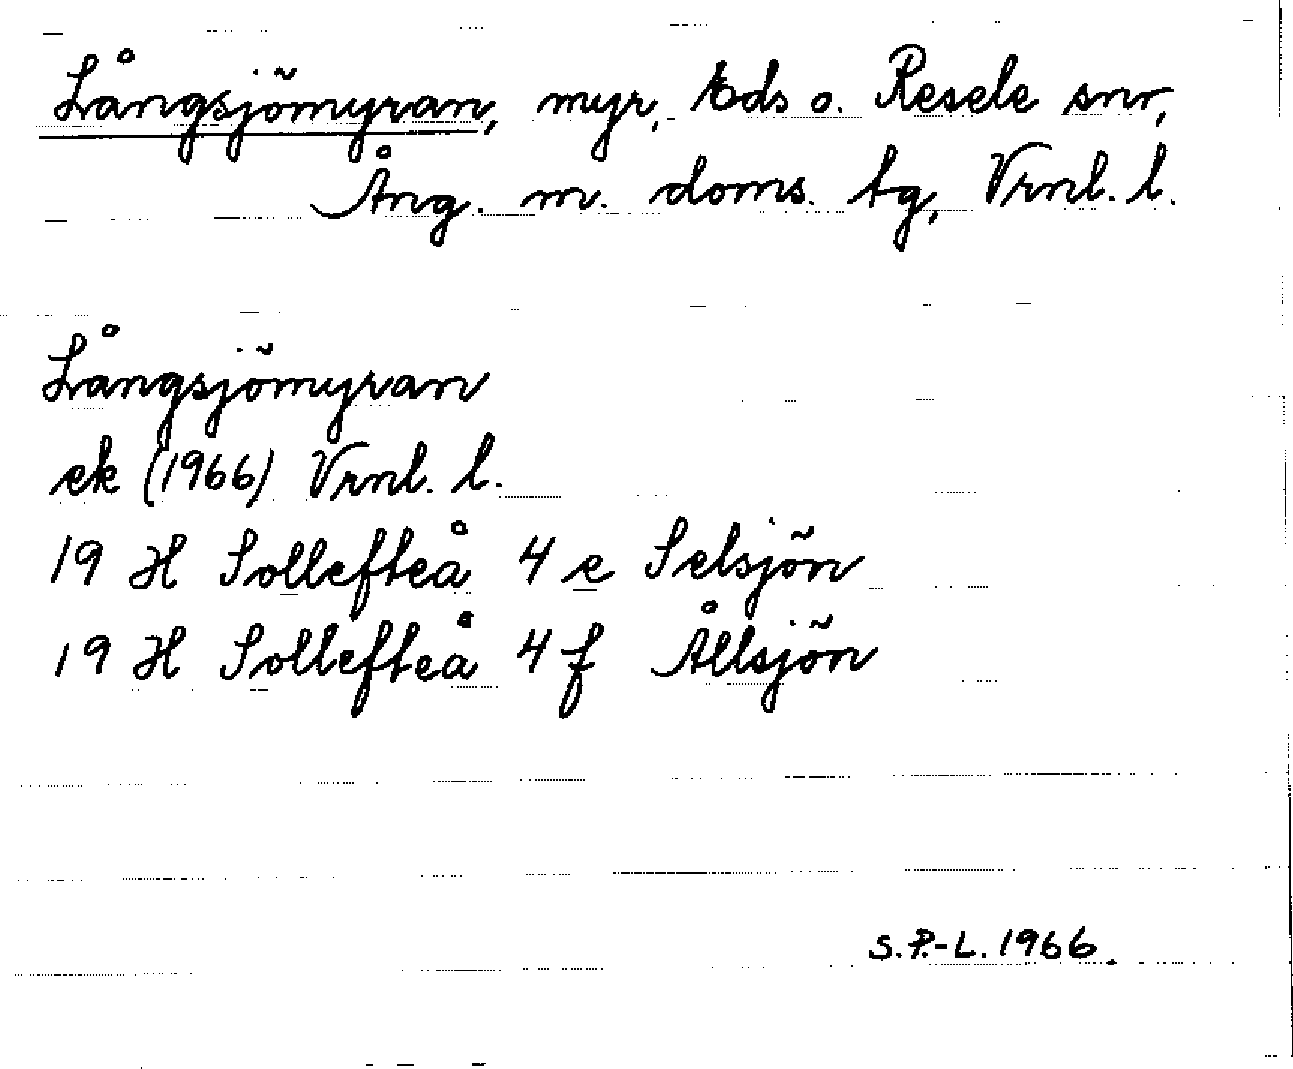 Långsjömyran, myr, Eds o. Resele snr,
Ång. m. doms. tg, Vrnl. l.
Långsjömyran
ek (1966) Vrnl. l.
19 H Sollefteå 4 e Selsjön
19 H Sollefteå 4 f Ållsjön
S.P.-L. 1966.